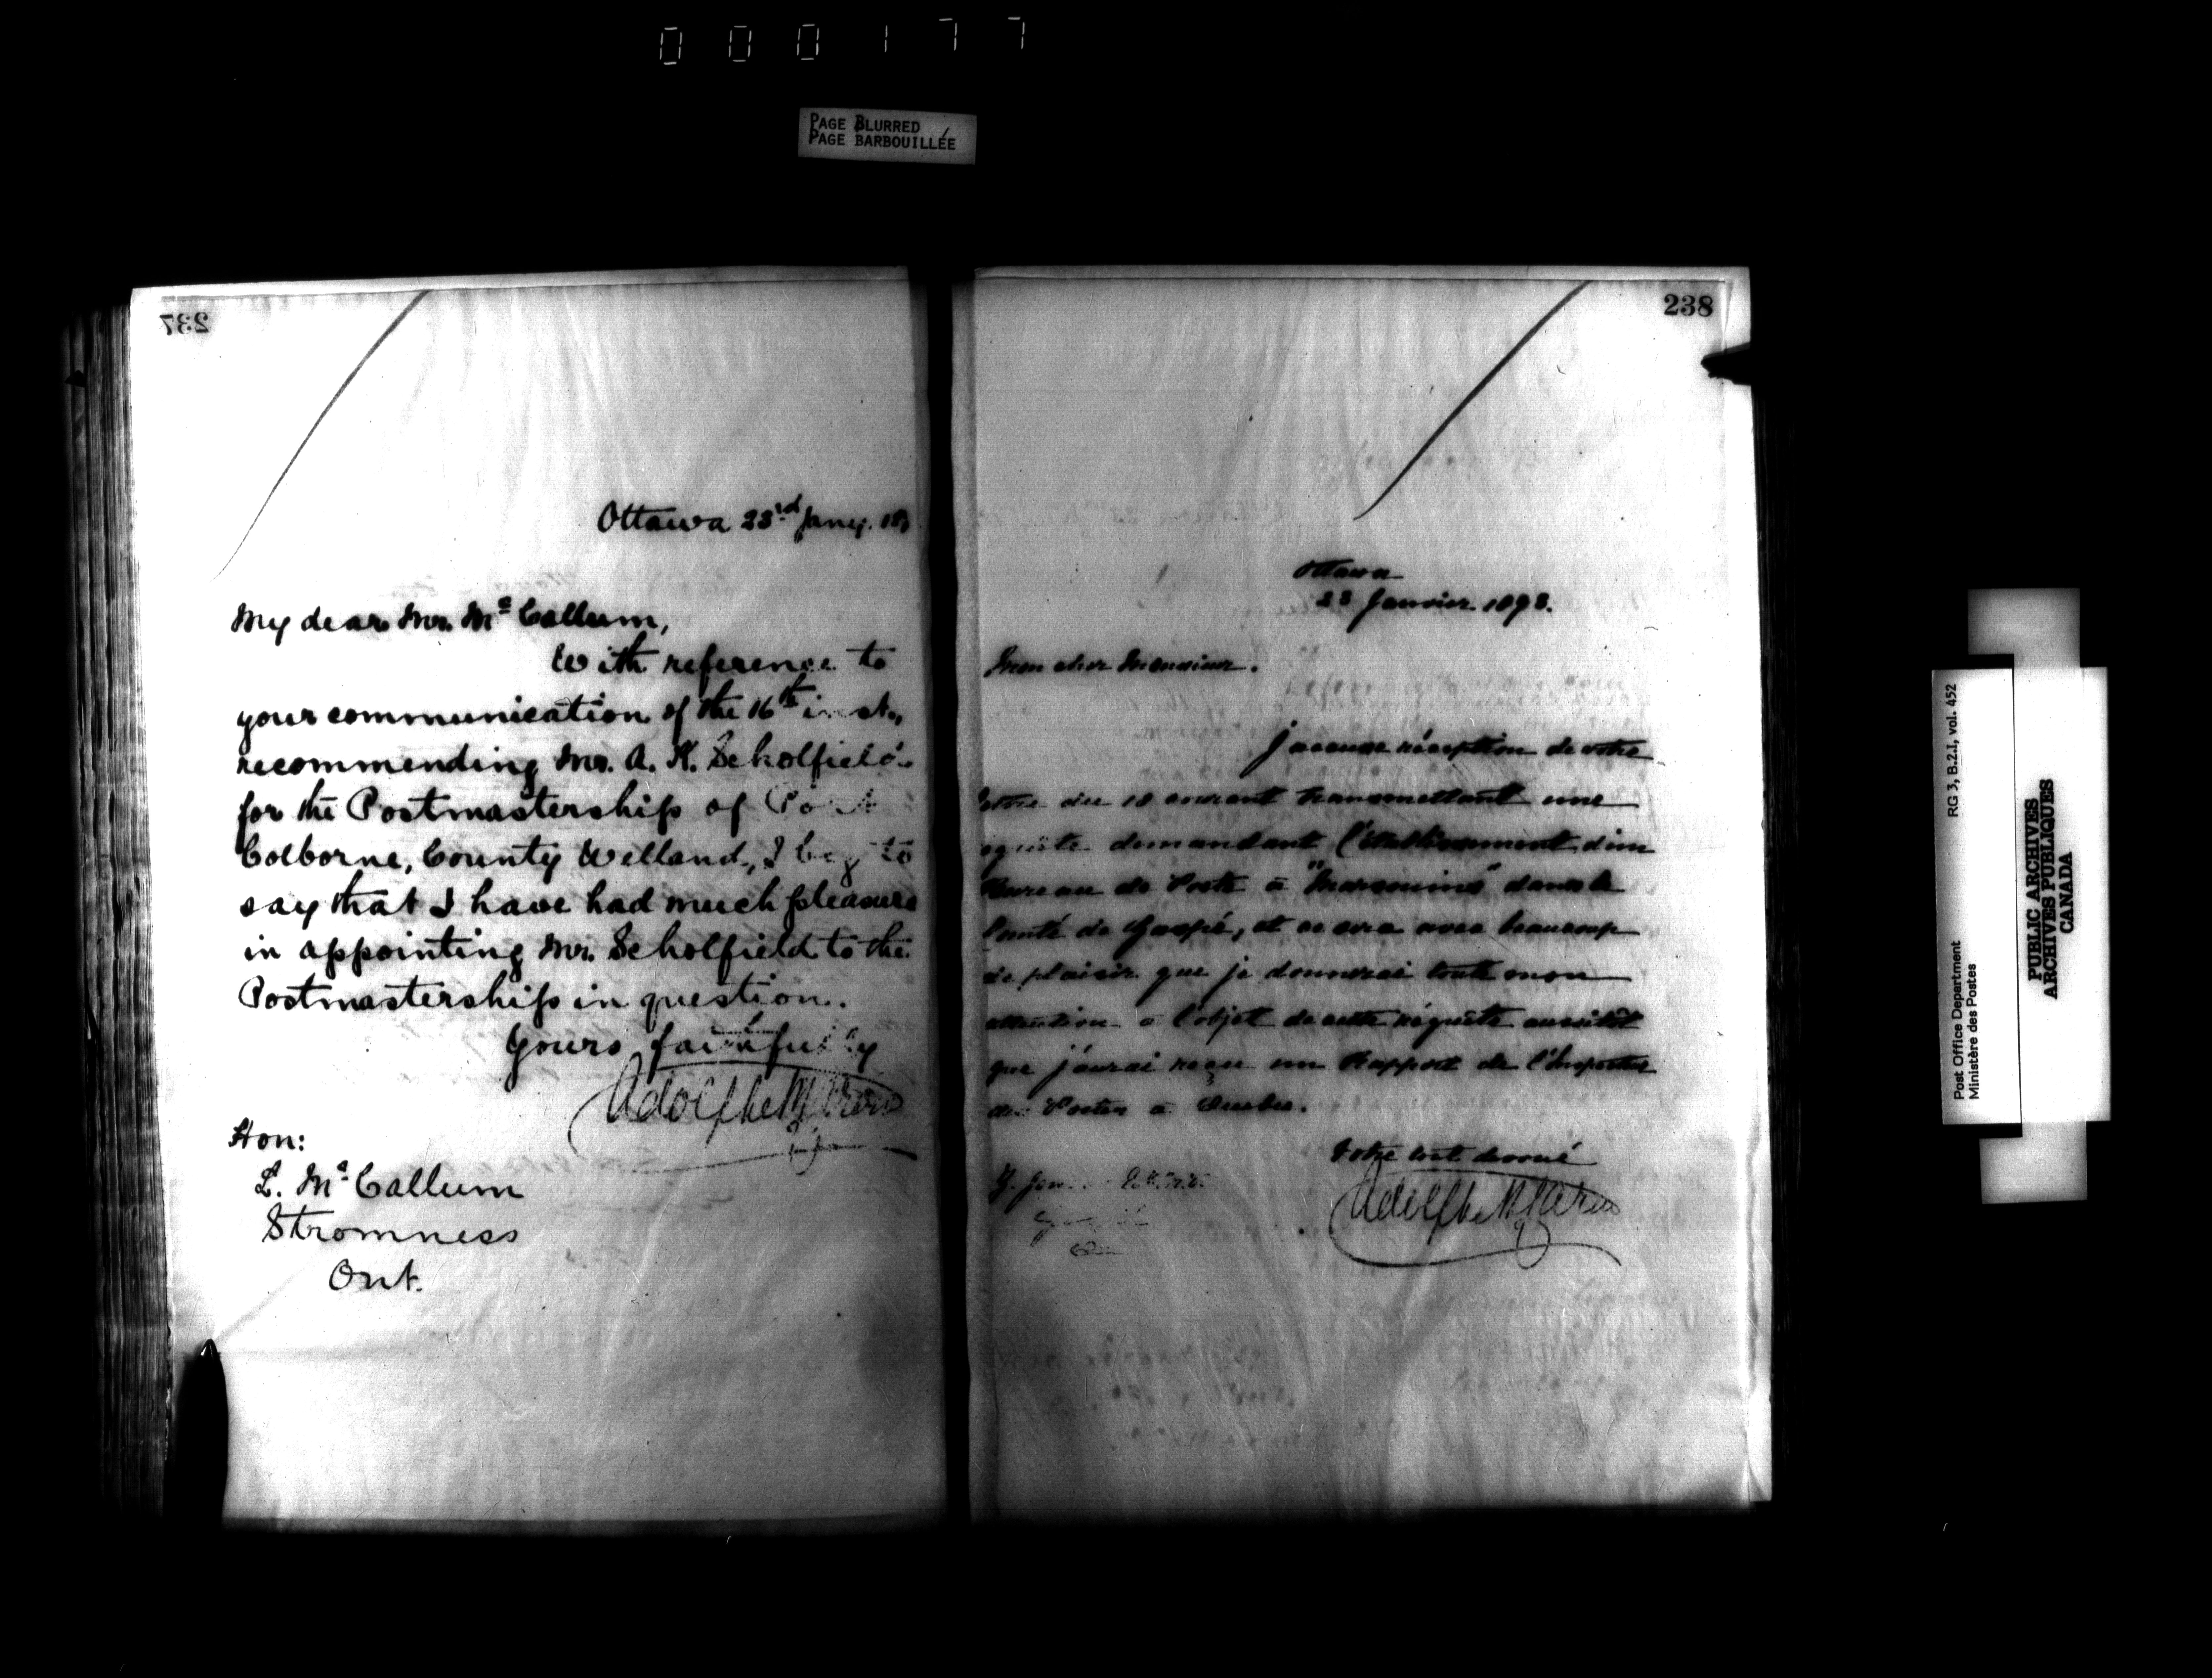 000177
PAGE BLURRED
PAGE BARBOUILLÉE
237
Ottawa 23rd Jany. 18
My dear Mr. Mc Callum,
With reference to
your communication of the 16th inst.,
recommending Mr. A. K. Scholfield
for the Postmastership of Port
Colborne, County Welland, I beg to
say that I have had much pleasure
in appointing Mr. Scholfield to the
Postmastership in question.
Yours faithfully
Adolphe P. Caron
Hon:
L. Mc Callum
Stromness
Ont.
238
Ottawa
23 Janvier 1893.
Mon cher Monsieur.
J'accuse réception de votre
lettre du 18 courant transmettant une
requête demandant l'établissement d'un
Bureau de Poste à "Marsouins" dans le
Comté de Gaspé, et ce sera avec beaucoup
de plaisir que je donnerai toute mon
attention à l'objet de cette requête aussitôt
que j'aurai reçu un Rapport de l'Inspecteur
des Postes à Québec.
Votre tout dévoué
Adolphe P. Caron
RG 3, B.2.I, vol. 452
Post Office Department
Ministère des Postes
PUBLIC ARCHIVES
ARCHIVES PUBLIQUES
CANADA